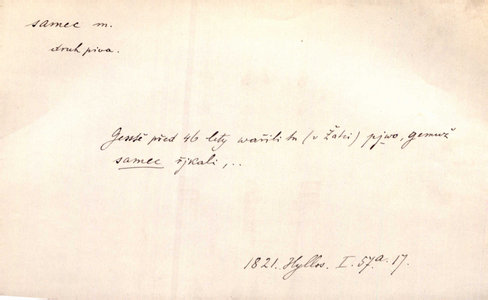 samec m.
druh piva.
Gesstě před 46 lety wařili tu (v Žatci) pjwo, gemuž
samec řjkali,..
1821. Hyllos. I. 57a. 17.